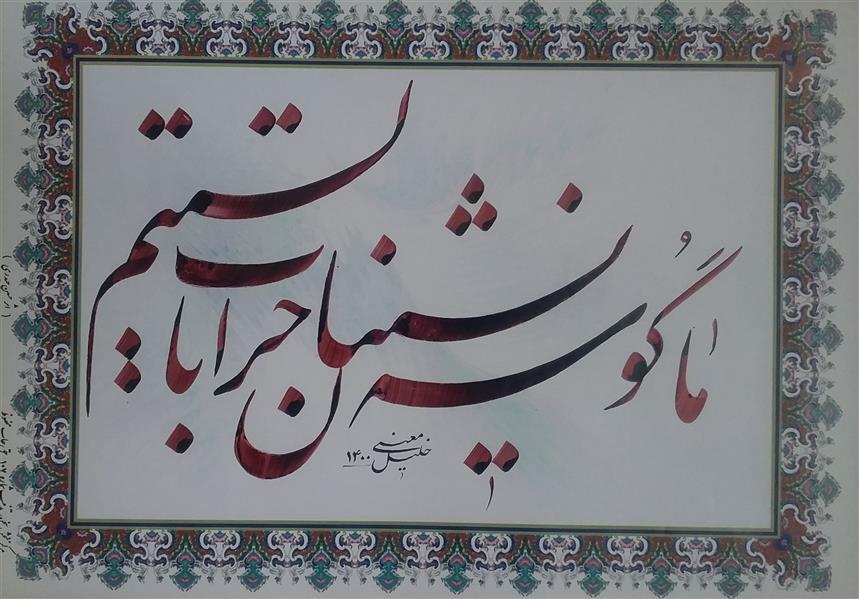 ما گوشه نشینان خرابات الستیم
خلیل معینی
۱۴۰۰